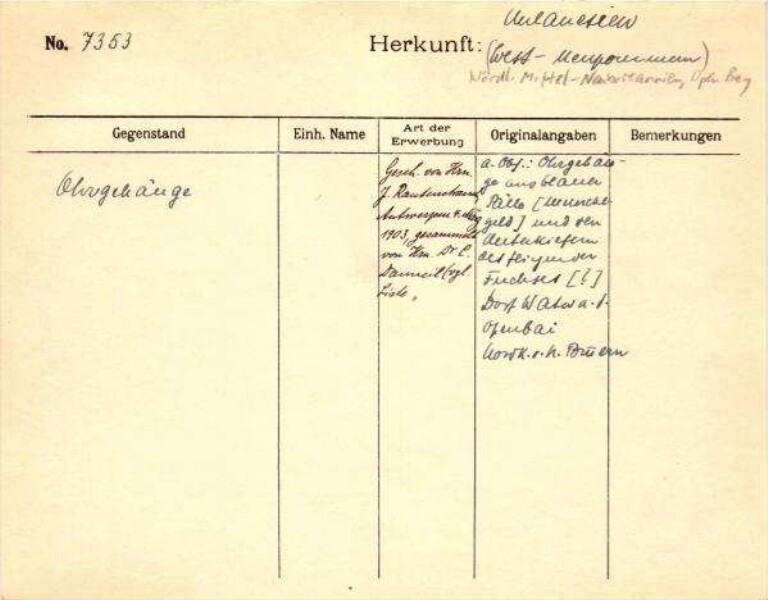 No. 7353
Herkunft:
Melanesien
(West-Neupommern)
Nördl. Mittel-Neubritannien, Open Bay
Gegenstand
Einh. Name
Art der Erwerbung
Originalangaben
Bemerkungen
Ohrgehänge
Gesch. von Hrn.
J. Rautenstrauch,
Antwerpen
1903, gesammelt
von Hrn. Dr C.
Danneil (vgl.
Liste.
a. Obj.: Ohrgehän-
ge aus blauer
geld] und den
Unterkiefern
des fliegenden
Fuchses [!]
Dorf Watu a. d.
Openbai
Nordk. v. N. Bri